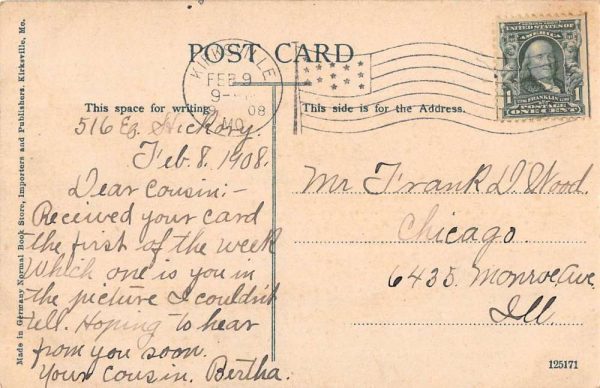 POST CARD
KIRKSVILLE
FEB 9
9
08
MO.
UNITED STATES OF AMERICA
1
FRANKLIN
POSTAGE
ONE CENT
1
This space for writing
This side is for the Address.
516 E. Hickory.
Feb. 8, 1908.
Dear Cousin:-
Received your card
the first of the week
Which one is you in
the picture I couldn't
tell. Hoping to hear
from you soon.
Your cousin. Bertha.
Mr Frank D. Wood.
Chicago
6435. Monroe Ave.
Ill.
Made in Germany Normal Book Store, Importers and Publishers. Kirksville, Mo.
125171